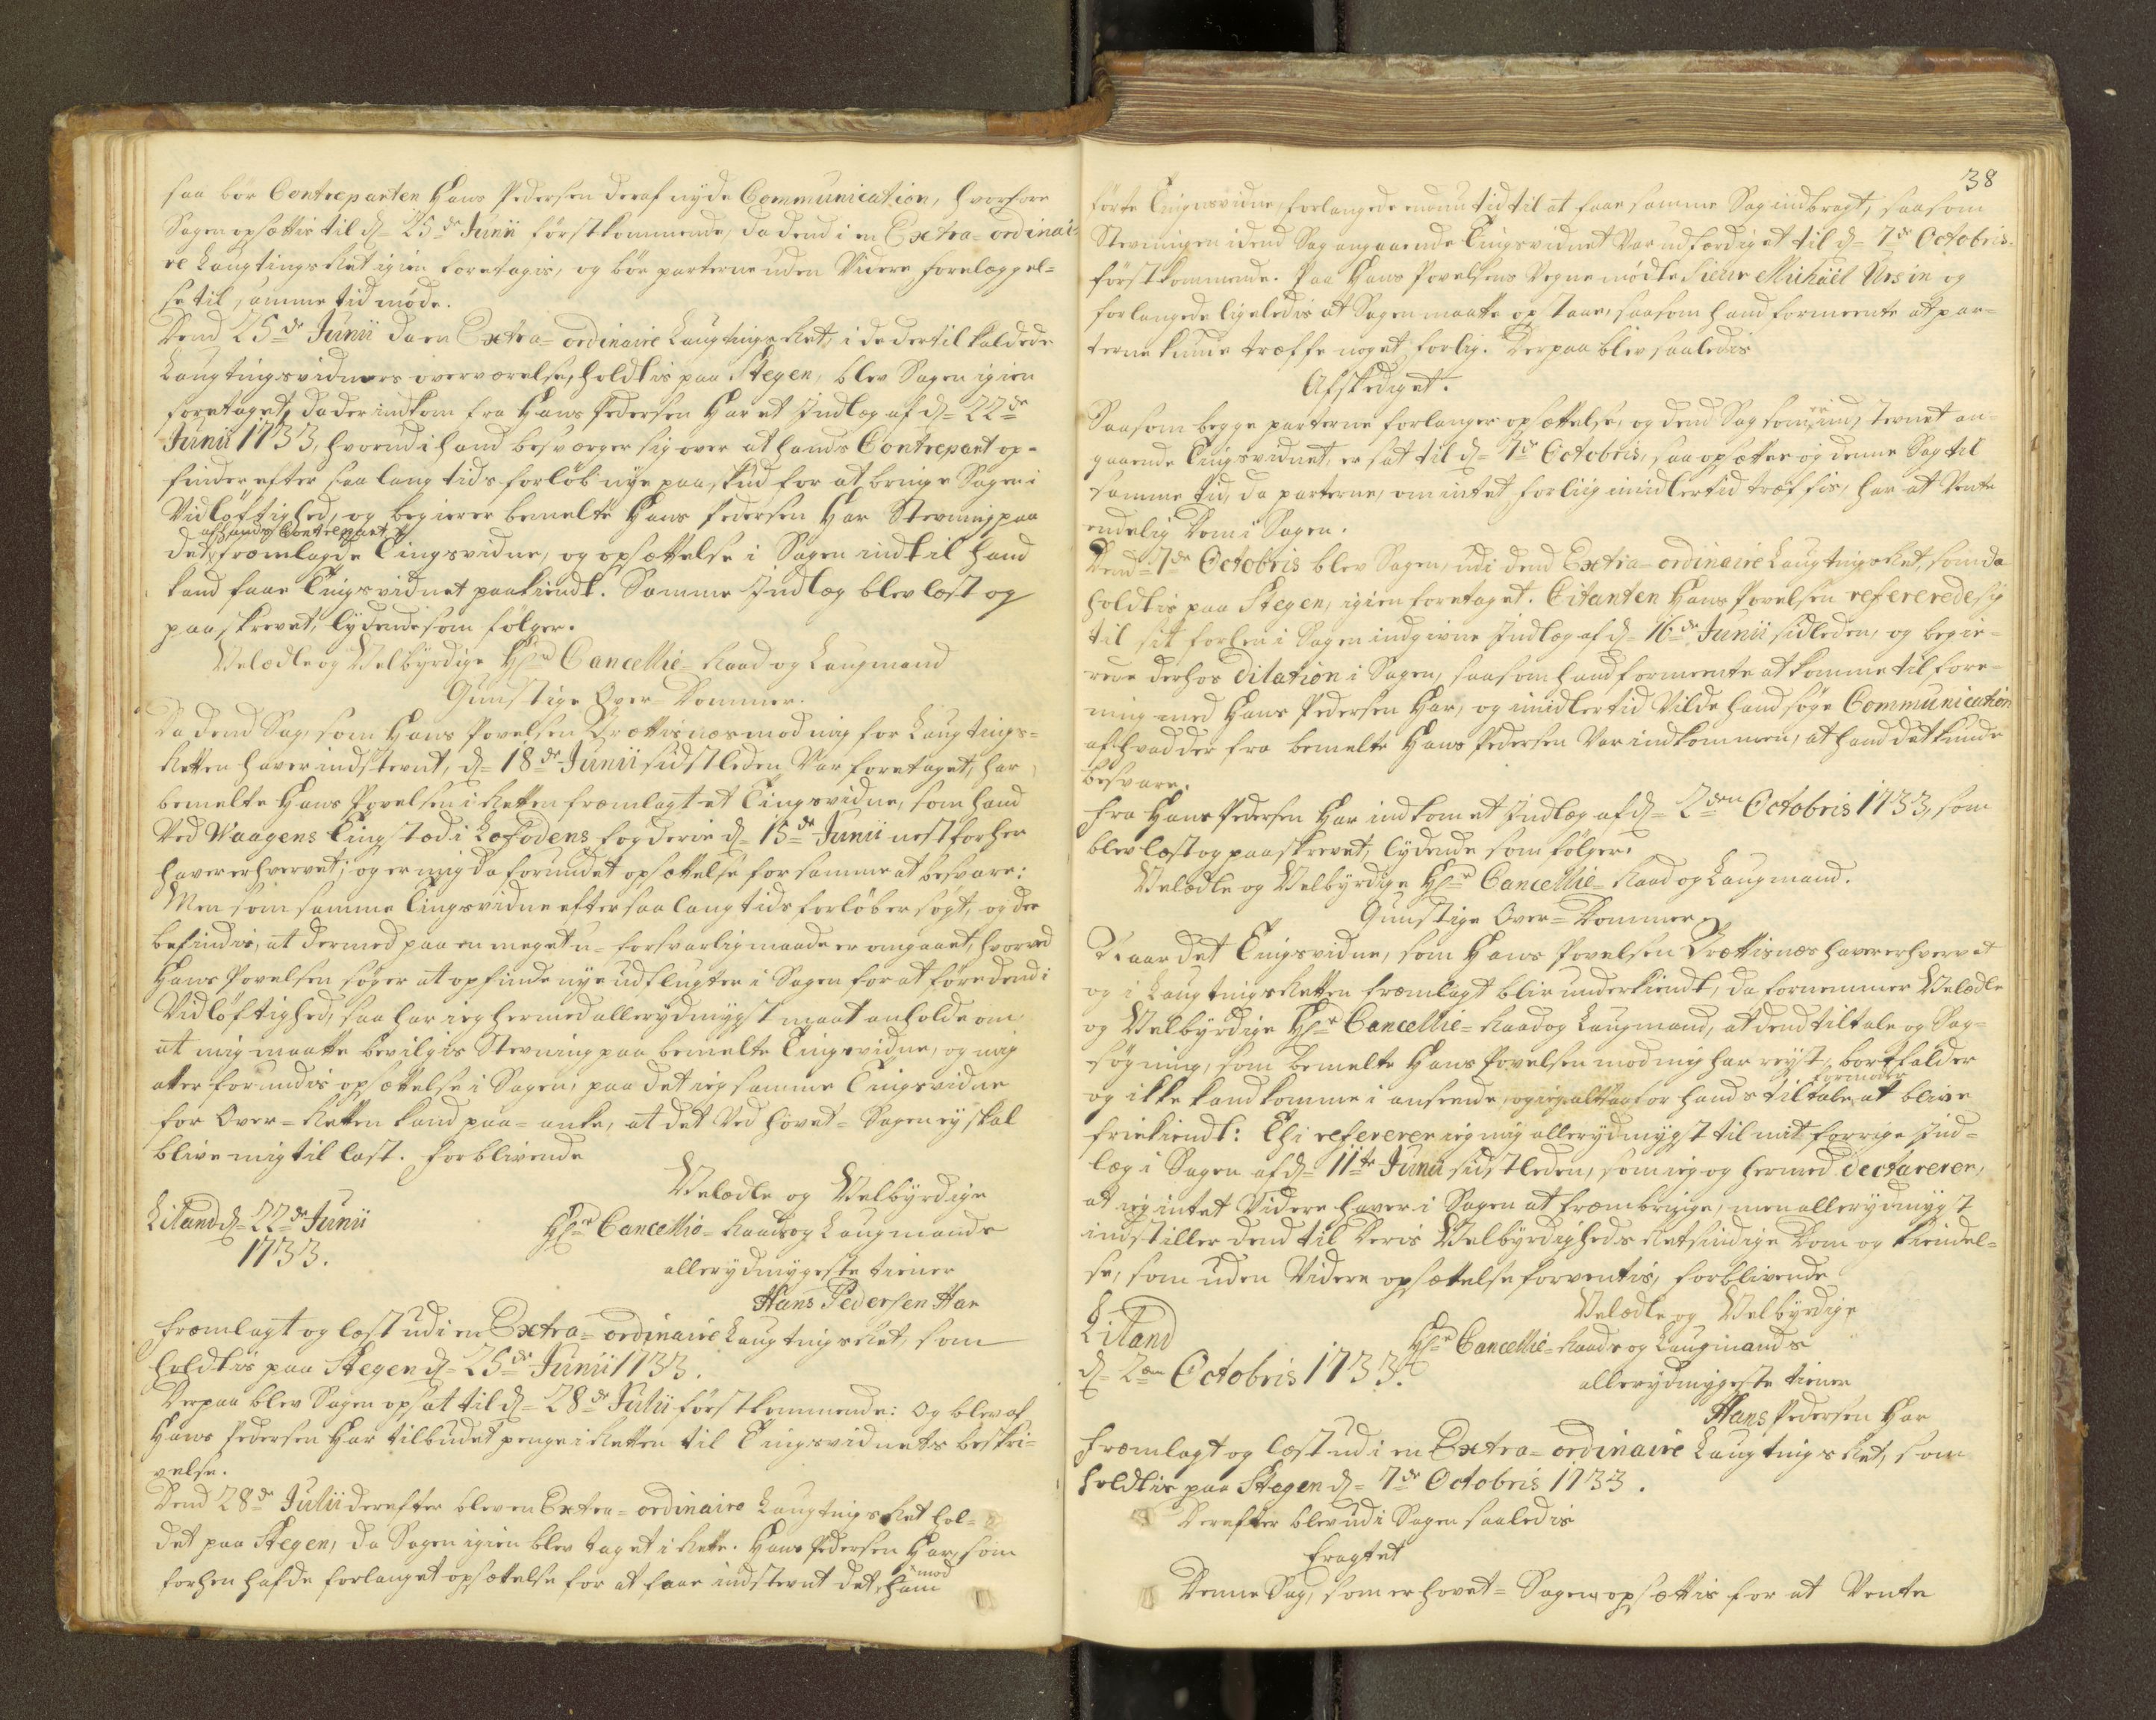 saa bör Contreparten Hans Pedersen deraf nyde Communication, hvorfore
Sagen opsættis til d= 25de Junii förstkommende, da dend i en Extra=ordinai-
re Laugtings Ret igien foretagis, og bör parterne uden Videre forelæggel=
se til samme tid møde.
Dend 25de Junii da en Extra=ordinaire Laugtings Ret, i de dertil kaldede
Laugtingsvidners overværelse, holdtis paa Stegen, blev Sagen igien
foretaget, da der indkom fra Hans Pedersen Har et Indlæg af d= 22de
Junii 1733, hvorudi hand besværger sig over at hands Contrepart op-
finder efter saa lang tids forlöb nye paaskud for at bringe Sagen i
Vidlöftighed, og begierer bemelte Hans Pedersen Har Stevning paa
det af hands Contrepart fremlagde Tingsvidne, og opsættelse i Sagen indtil hand
kand faae Tingsvidnet paakiendt. Samme Indlæg blev læst og
paaskrevet, lydende som fölger.
Velædle og Velbÿrdige Hr Cancellie=Raad og Laugmand
Gunstige Over=Dommer.
Da dend Sag, som Hans Povelsen Brættisnæs mod mig for Laugtings=
Retten haver indstevnt, d= 18de Junii sidstleden Var foretaget, har
bemelte Hans Povelsen i Retten fremlagt et Tingsvidne, som hand
Ved Vaagens Tingsted i Lofodens fogderie d= 15de Junii nest forhen
haver erhvervet; og er mig da forundet opsættelse for samme at besvare:
Men som samme Tingsvidne efter saa lang tids forlöb er sögt, og der
befindis, at dermed paa en meget u=forsvarlig maade er omgaaet, hvorved
Hans Povelsen söger at opfinde nye udflugter i Sagen for at före dend i
Vidlöftighed, saa har ieg hermed allerydmygst maat anholde om
at mig maatte bevilgis Stevning paa bemelte Tingsvidne, og mig
atter forundis opsættelse i Sagen, paa det ieg samme Tingsvidne
for Over=Retten kand paa=anke, at det Ved hovet=Sagen ey skal
blive mig til last. forblivende
Velædle og Velbÿrdige
Liland d= 22de Junii
Hr Cancellie=Raads og Laugmands
1733.
allerydmygeste tiener
Hans Pedersen Har
fremlagt og læst udi en Extra=ordinaire Laugtings Ret, som
holdtis paa Stegen d= 25de Junii 1733.
Derpaa blev Sagen opsat til d= 28de Julii förstkommende: Og blev af
Hans Pedersen Har tilbudet penge i Retten til Tingsvidnets beskri-
velse.
Dend 28de Julii derefter blev en Extra=ordinaire Laugtings Ret hol=
det paa Stegen, da Sagen igien blev taget i Rette. Hans Pedersen Har, som
forhen hafde forlanget opsættelse for at faae indstevnt det, mod ham
38
förte Tingsvidne, forlangede endnu tid til at faae samme Sag indbragt, saasom
Stevningen i dend Sag angaaende Tingsvidnet Var udfærdiget til d= 7de Octobris
förstkommende. Paa Hans Povelsens Vegne mødte Sieur Michäel Ursin og
forlangede ligeledis at Sagen maatte opstaae, saasom hand formeente at par=
terne kunde træffe noget forlig. Derpaa blev saaledis
Afskediget.
Saasom begge parterne forlanger opsættelse, og dend Sag som er indstevnet an=
gaaende Tingsvidnet, er sat til d= 7de Octobris, saa opsættes og denne Sag til
samme tid, da parterne, om intet forliig imidlertid træffis, har at Vente
endelig Dom i Sagen.
Dend 7de Octobris blev Sagen, udi dend Extra=ordinaire Laugtings Ret, som da
holdtis paa Stegen, igien foretaget. Citanten Hans Povelsen refererede sig
til sit forhen i Sagen indgivne Indlæg af d= 16de Junii sidleden, og begie-
rede derhos dilation i Sagen, saasom hand formeente at komme til fore=
ning med Hans Pedersen Har, og imidlertid Vilde hand söge Communication
af hvad der fra bemelte Hans Pedersen Var indkommen, at hand det kunde
besvare.
fra Hans Pedersen Har indkom et Indlæg af d= 2den Octobris 1733, som
blev læst og paaskrevet, lydende som fölger:
Velædle og Velbÿrdige Hr Cancellie=Raad og Laugmand.
Gunstige Over=Dommer
Naar det Tingsvidne, som Hans Povelsen Brættisnæs haver erhvervet
og i Laugtings Retten fremlagt blir underkiendt, da fornemmer Velædle
og Velbÿrdige Hr Cancellie=Raad og Laugmand, at dend tiltale og Sag=
søgning, som bemelte Hans Povelsen mod mig har reyst, bortfalder
og ikke kand komme i anseende, og ieg altsaa for hands tiltale formoder at blive
friekiendt: Thi refererer ieg mig allerydmygst til mit forrige Ind=
læg i Sagen af d= 11te Junii sidstleden, som ieg og hermed declarerer,
at ieg intet Videre haver i Sagen at frembringe, men allerydmygst
indstiller dend til Deris Velbÿrdigheds Retsindige Dom og kiendel=
se, som uden Videre opsættelse forventis, forblivende
Velædle og Velbÿrdige
Liland
Hr Cancellie=Raads og Laugmands
d= 2den Octobris 1733.
allerydmygeste tiener
Hans Pedersen Har
fremlagt og læst udi en Extra=ordinaire Laugtings Ret, som
holdtis paa Stegen d= 7de Octobris 1733.
Derefter blev udi Sagen saaledis
Eragtet
Denne Sag, som er hovet=Sagen, opsættis for at Vente